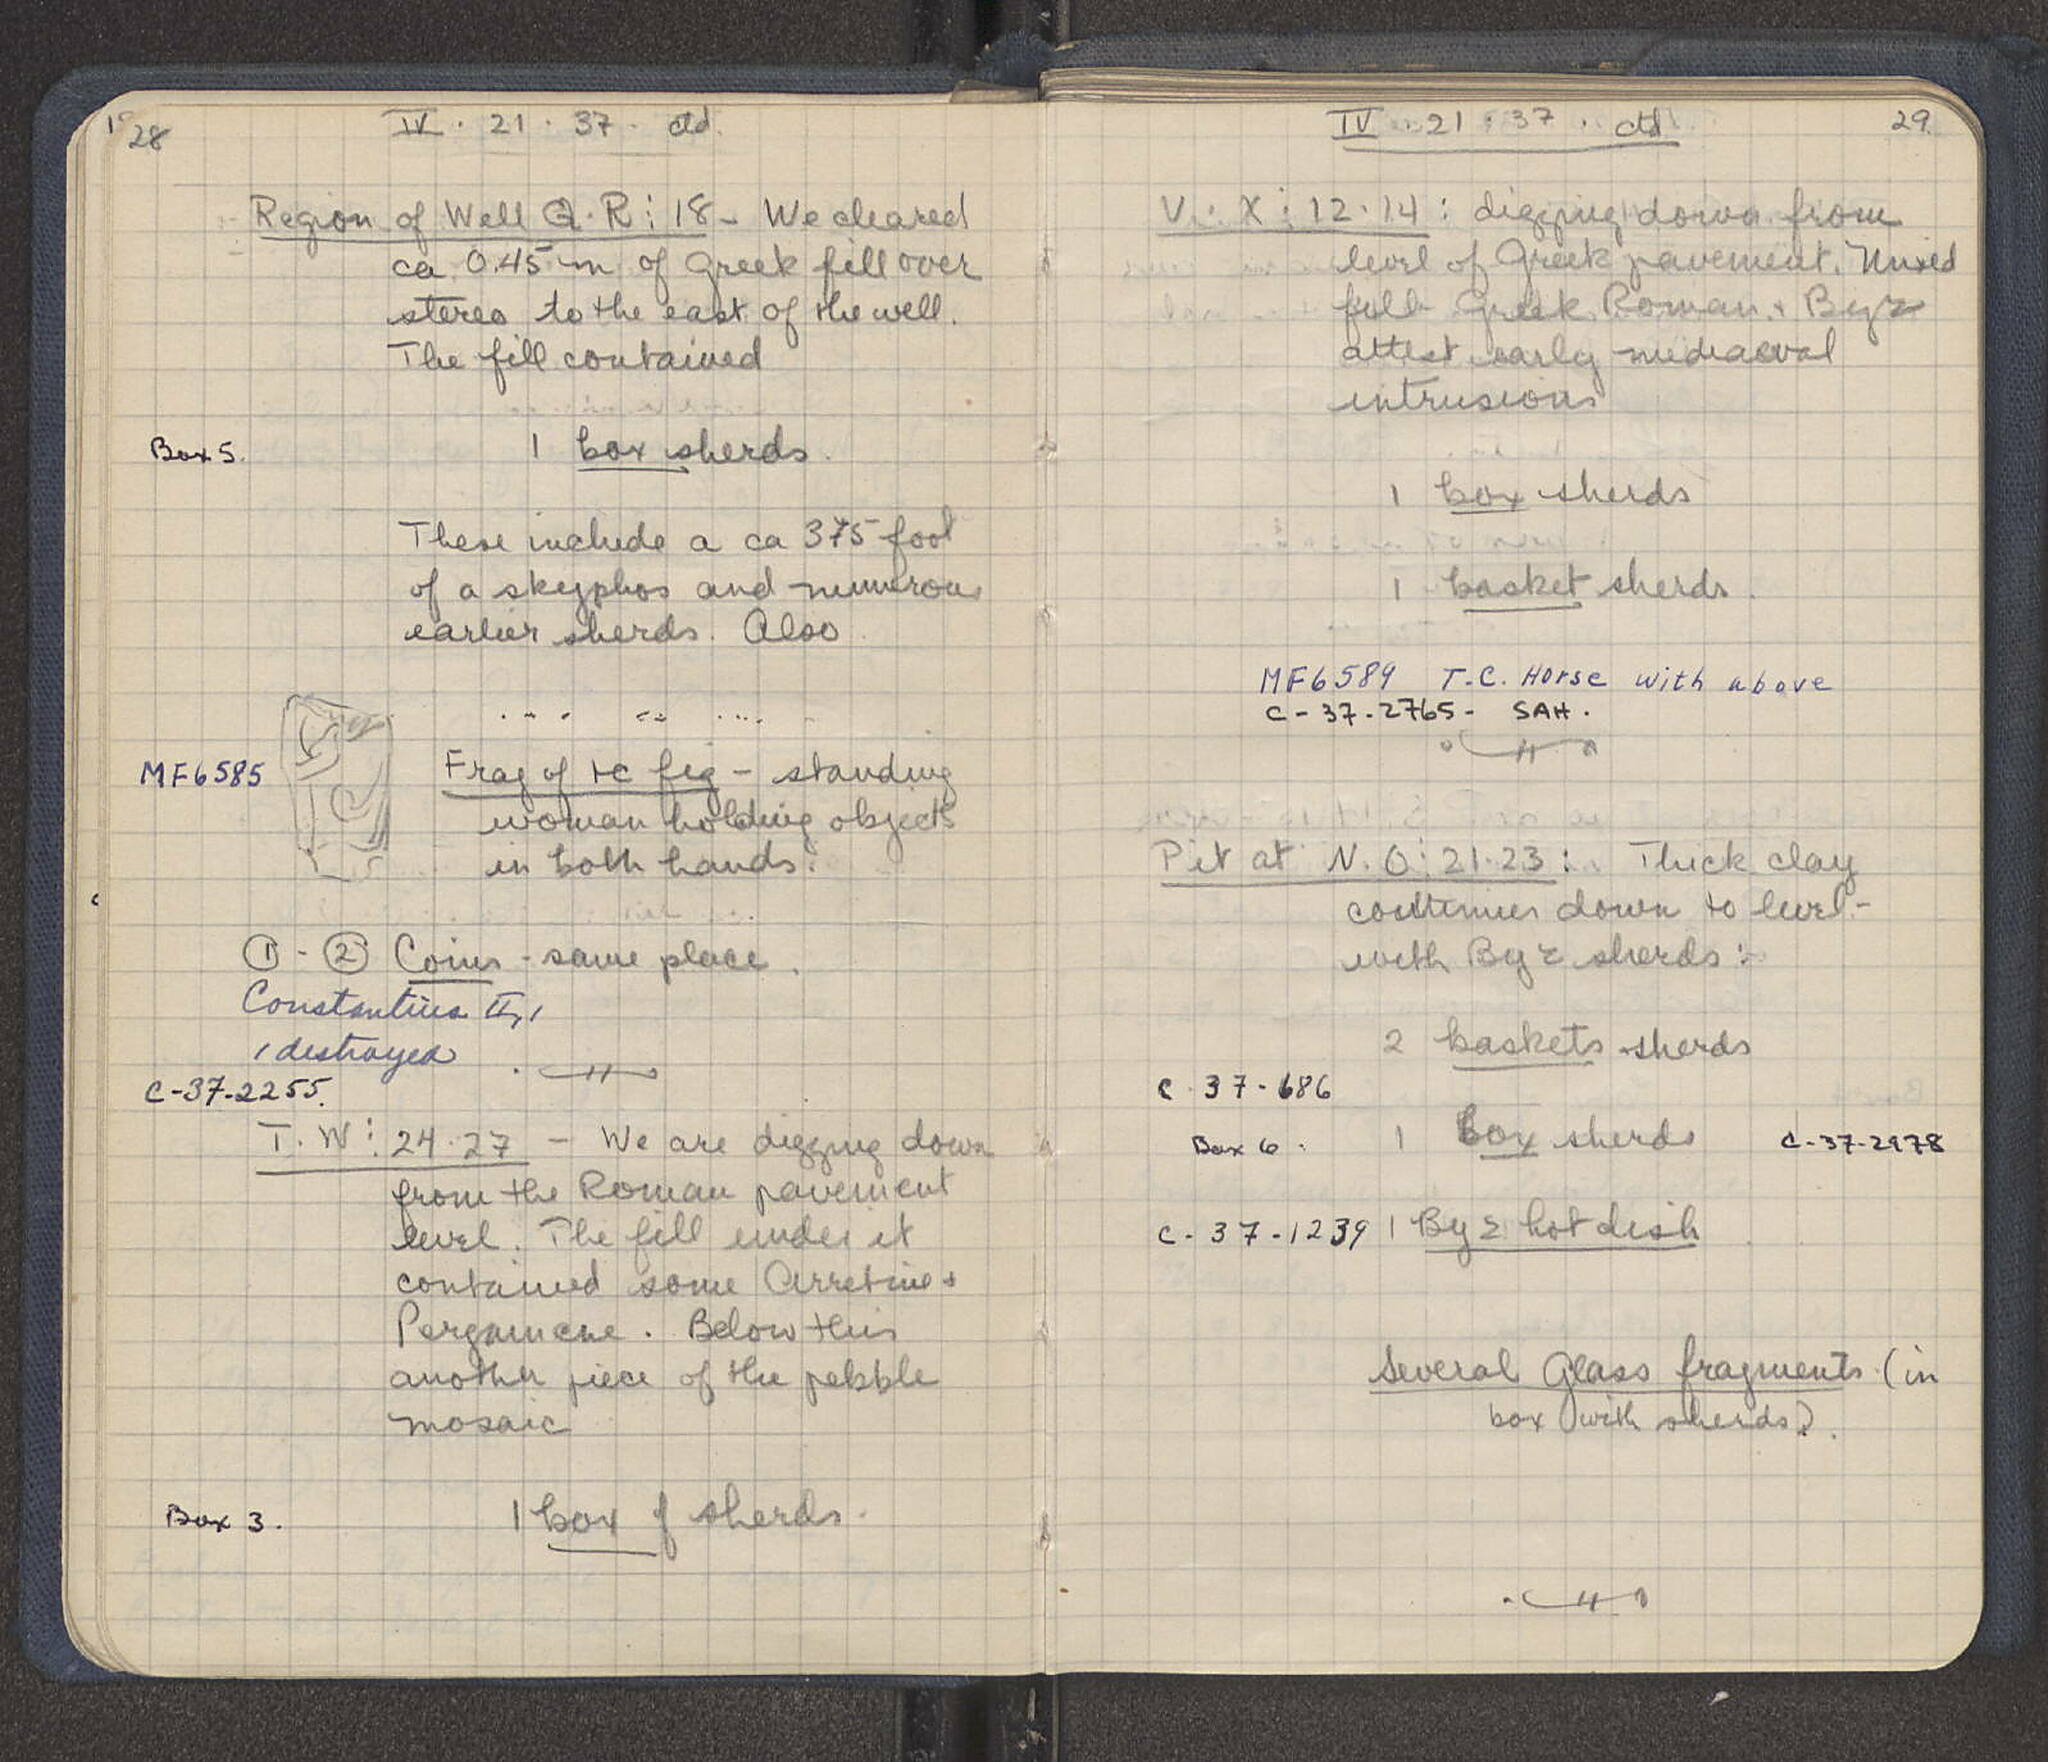 28
IV · 21 · 37 · ctd.
Region of Well Q·R:18 - We cleared
ca 0.45 m of Greek fill over
stereo to the east of the well.
The fill contained
Box 5. 1 box sherds.
These include a ca 375 foot
of a skyphos and numerous
earlier sherds. Also
MF6585 Frag of tc fig - standing
woman holding objects
in both hands.
① - ② Coins - same place.
Constantius II, 1
1 destroyed
C-37-2255.
T·W: 24·27 - We are digging down
from the Roman pavement
level. The fill under it
contained some Arretine +
Pergamene. Below this
another piece of the pebble
mosaic
Box 3. 1 box of sherds.
IV · 21 · 37 · ctd
29
V·X:12·14: digging down from
level of Greek pavement. Mixed
fill Greek Roman + Byz
attest early mediaeval
intrusions
1 box sherds
1 basket sherds.
MF6589 T.C. Horse with above
C-37-2765- SAH.
Pit at N.O:21·23: Thick clay
continues down to level-
with Byz sherds:
2 baskets sherds
C·37-686
Box 6. 1 box sherds C-37-2978
C-37-1239 1 Byz hot dish
Several Glass fragments (in
box with sherds).